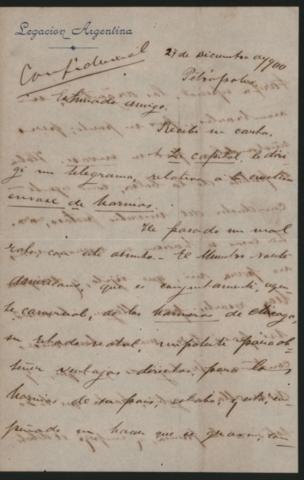 Legación Argentina
Confidencial
27 de Diciembre de 1900
Petrópolis
Estimado amigo:
Recibí su carta.
A La Capital, le diri
gí un telegrama, relativo a la cuestión
envase de harinas.
He pasado un mal
rato, con este asunto. El Ministro norte
americano, que es conjuntamente, agen
te comercial, de las harineras de Chicago,
su ciudad natal,
tener ventajas directas, para las
harinas de su país, estaba, y está, em
peñado en hacer que se graven, con